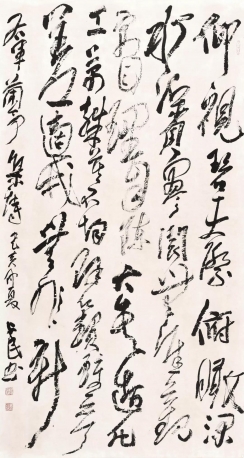 仰視碧天際俯瞰淥
水濱寥闃無涯觀
寓目理自陳大矣造化
工萬殊莫不均群籟雖參
差適我無非新
右軍蘭亭集詩 己亥仲夏 民書